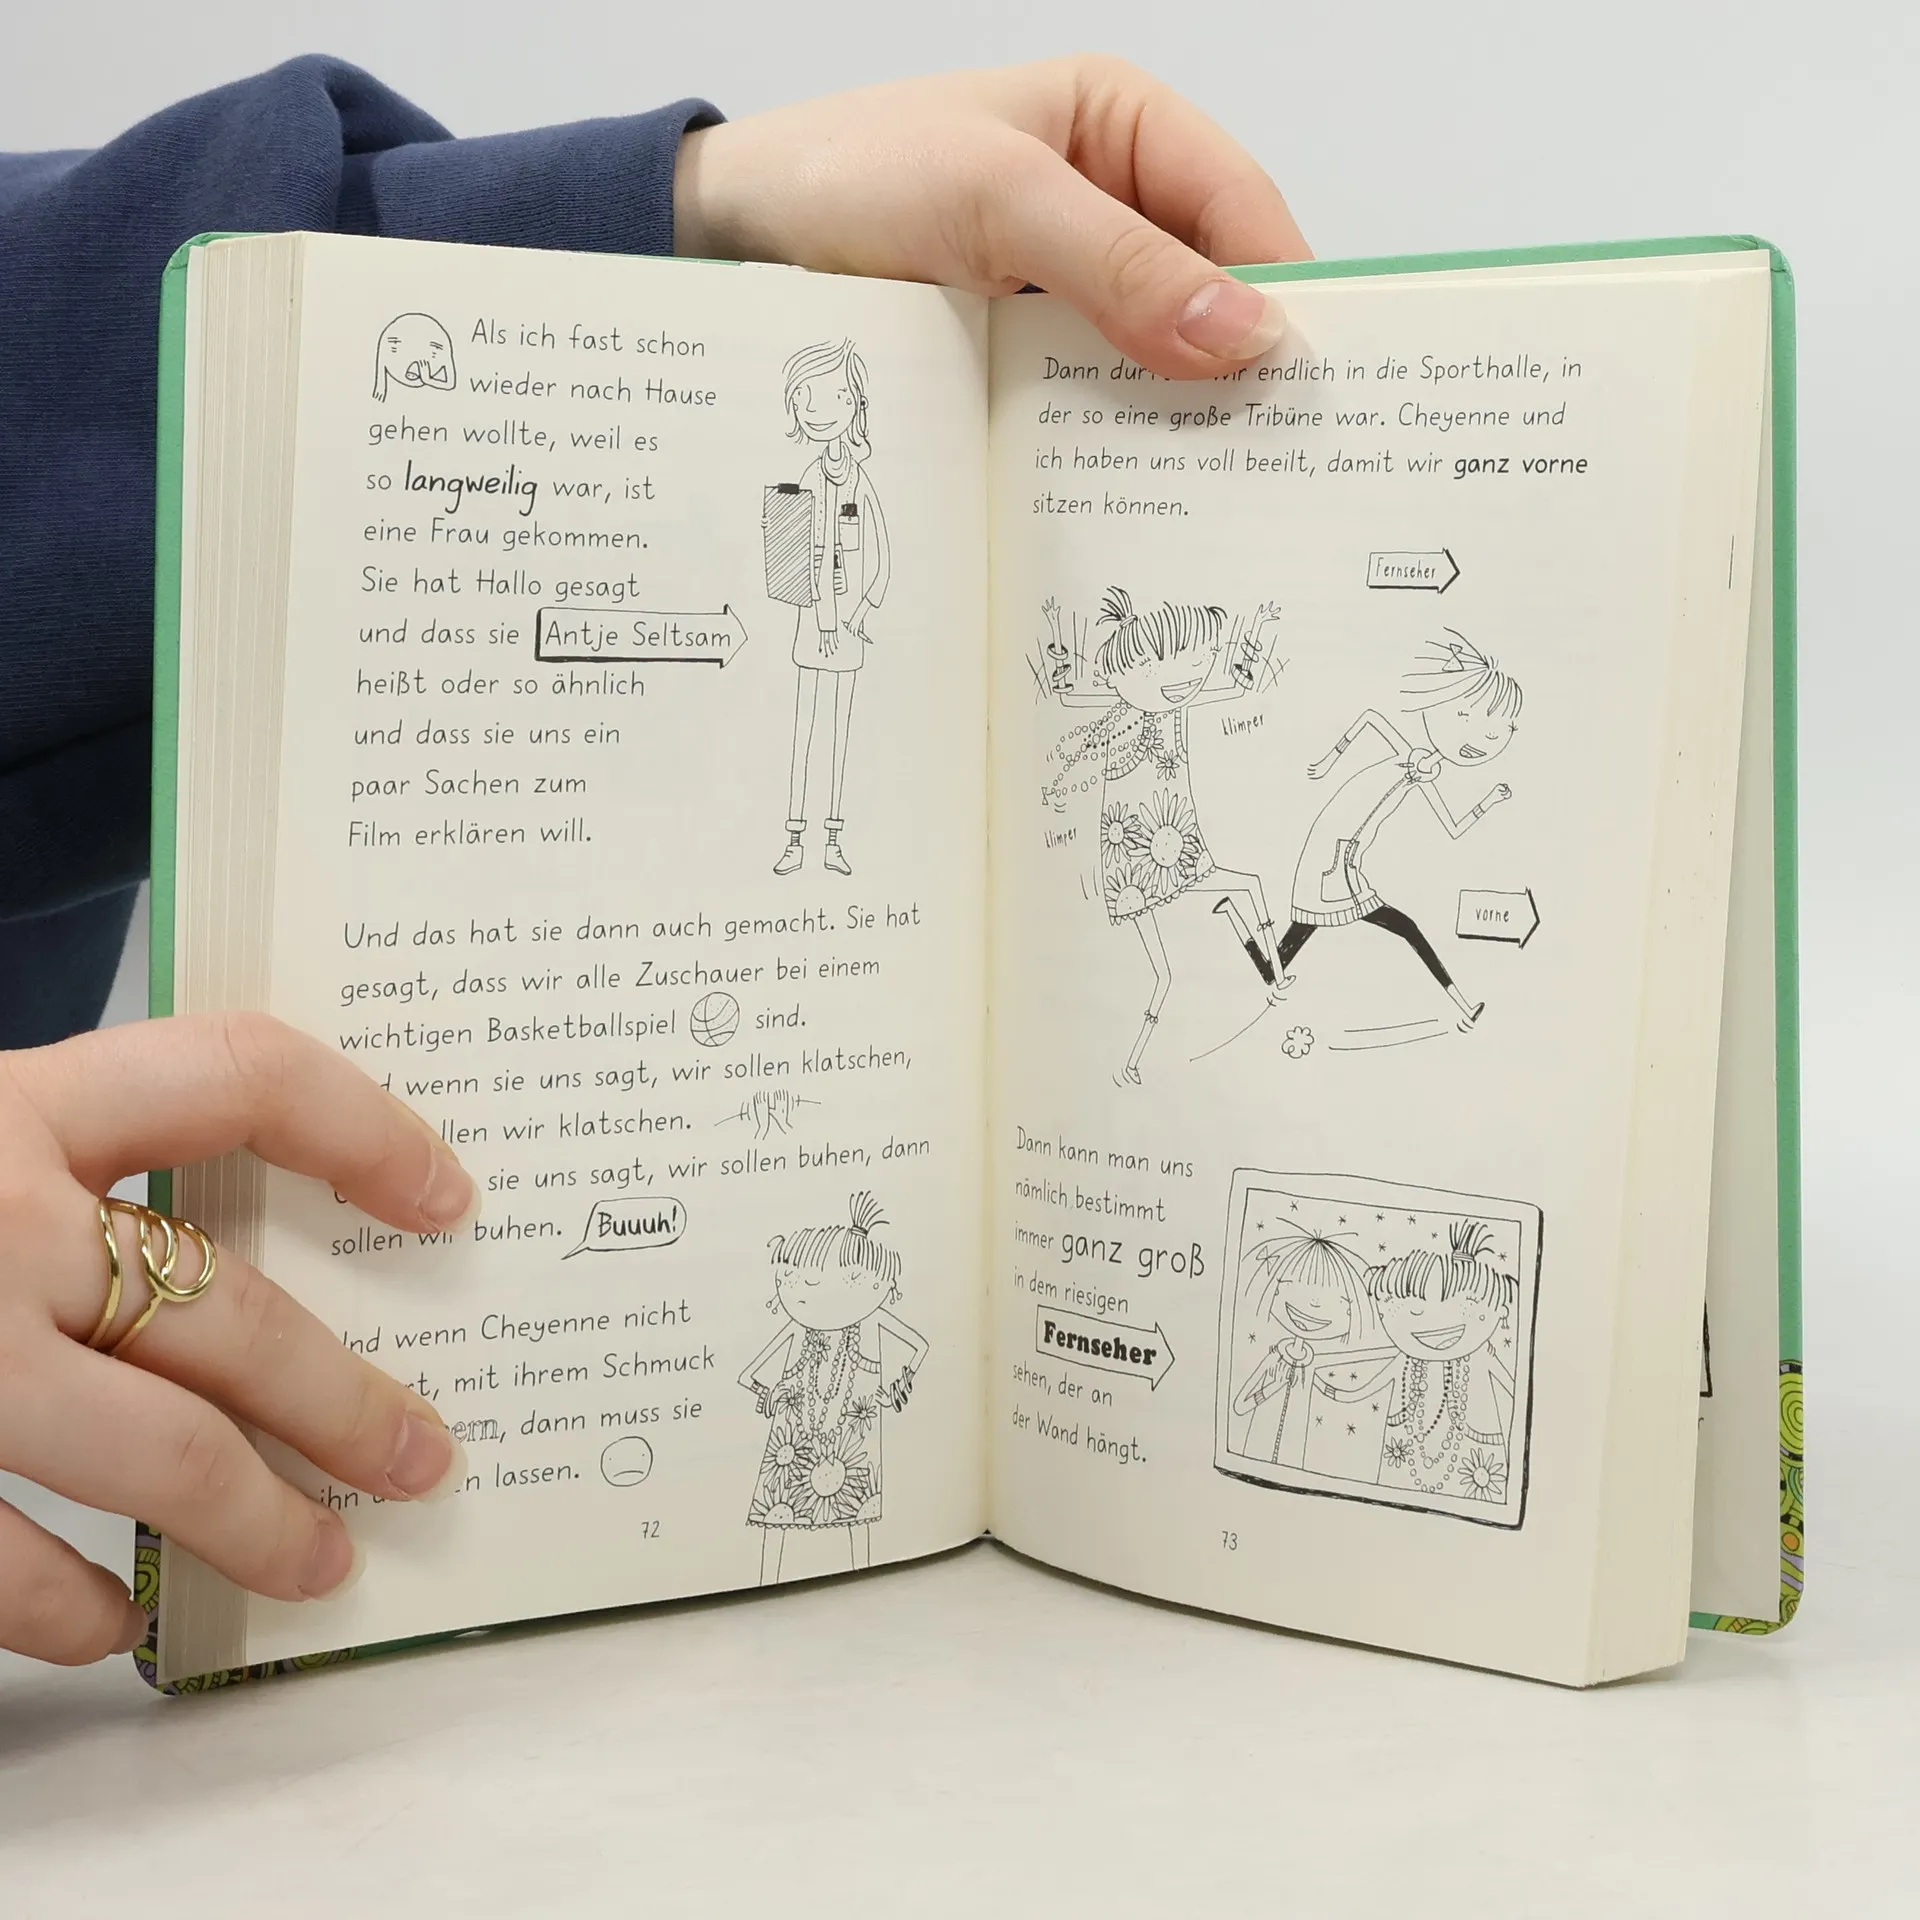 Als ich fast schon
wieder nach Hause
gehen wollte, weil es
so langweilig war, ist
eine Frau gekommen.
Sie hat Hallo gesagt
und dass sie Antje Seltsam
heißt oder so ähnlich
und dass sie uns ein
paar Sachen zum
Film erklären will.
Und das hat sie dann auch gemacht. Sie hat
gesagt, dass wir alle Zuschauer bei einem
wichtigen Basketballspiel sind.
wenn sie uns sagt, wir sollen klatschen,
wir klatschen.
sie uns sagt, wir sollen buhen, dann
sollen wir buhen. Buuuh!
wenn Cheyenne nicht
mit ihrem Schmuck
dann muss sie
ihn lassen.
72
Dann wir endlich in die Sporthalle, in
der so eine große Tribüne war. Cheyenne und
ich haben uns voll beeilt, damit wir ganz vorne
sitzen können.
Fernseher
klimper
klimper
vorne
Dann kann man uns
nämlich bestimmt
immer ganz groß
in dem riesigen
Fernseher
sehen, der an
der Wand hängt.
73